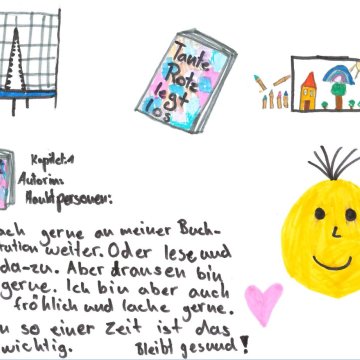 Tante
Rotz
legt
los
Kapitel:1
Autorin:
Hauptpersonen:
gerne an meiner Buch-
weiter. Oder lese und
da-zu. Aber drausen bin
gerne. Ich bin aber auch
fröhlich und lache gerne.
so einer Zeit ist das
wichtig. Bleibt gesund!